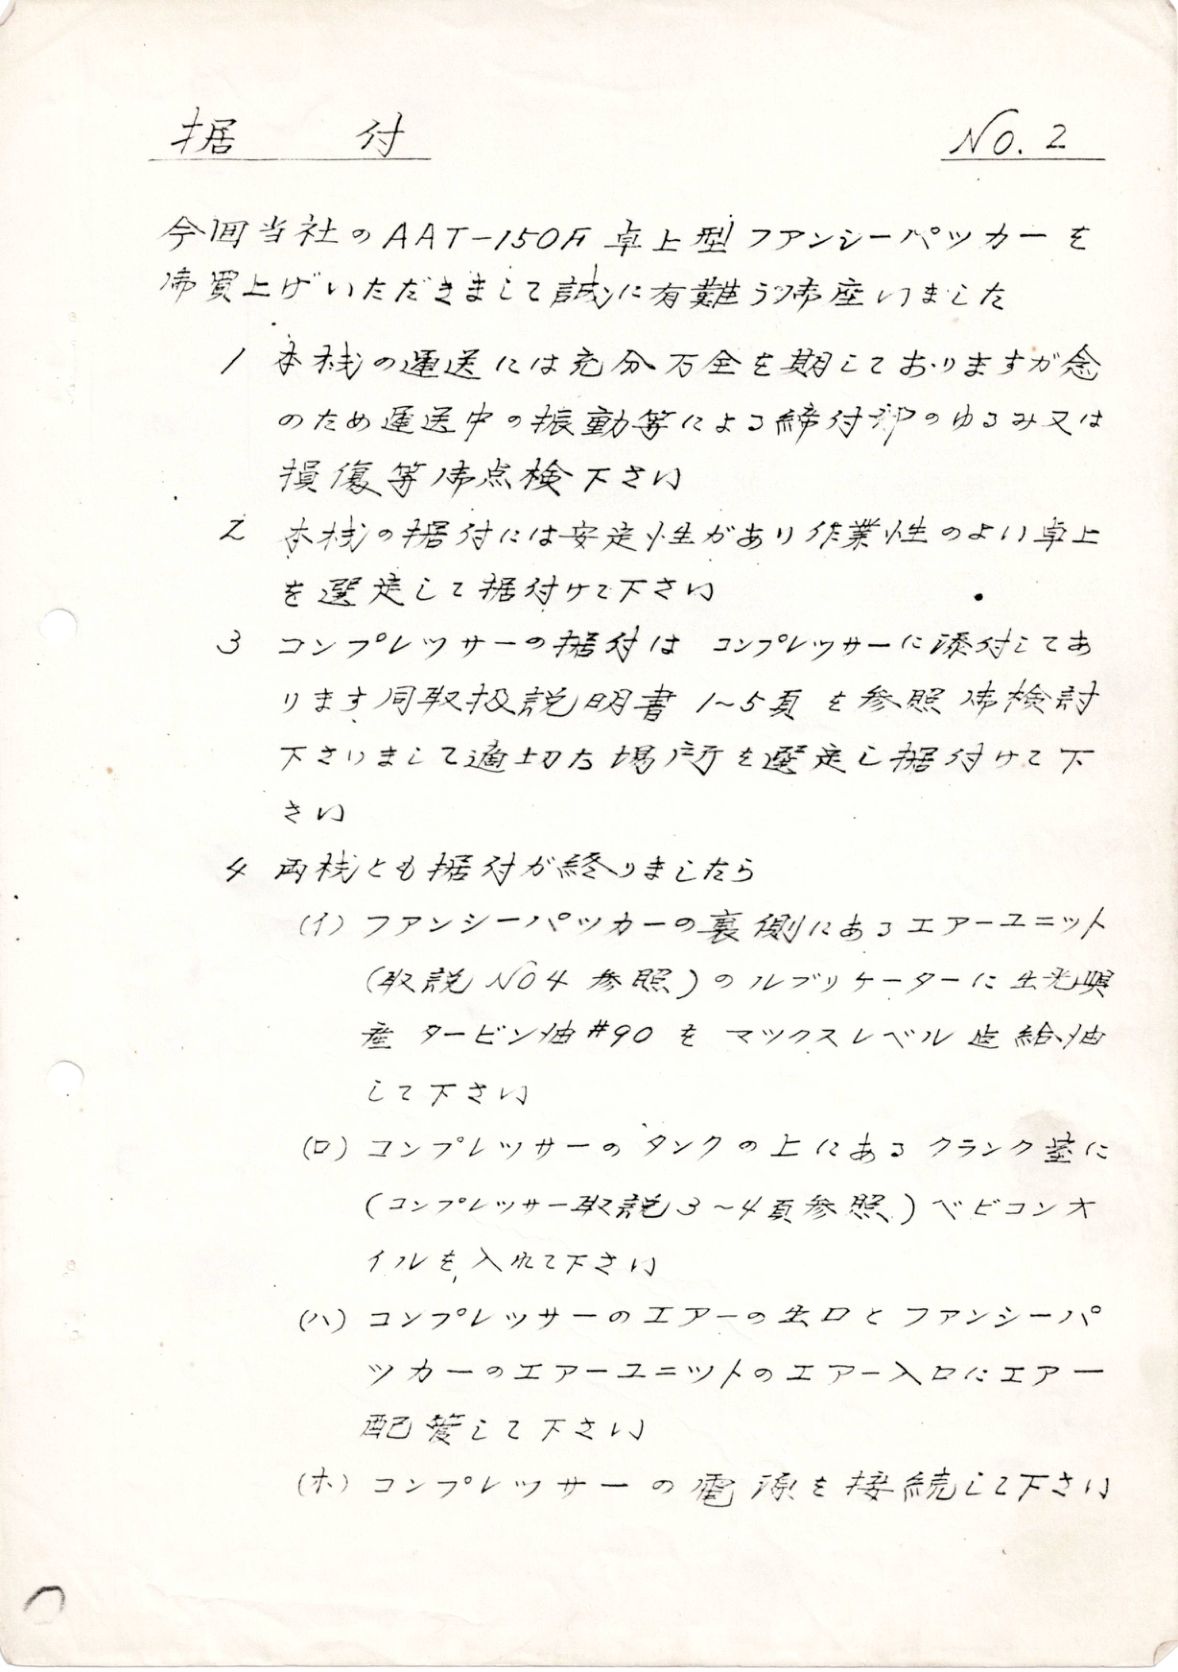 据付 NO. 2
今回当社のAAT-150F 卓上型ファンシーパッカーを
御買上げいただきまして誠に有難う御座いました
1 本機の運送には充分万全を期しておりますが念
のため運送中の振動等による締付部のゆるみ又は
損傷等御点検下さい
2 本機の据付には安定性があり作業性のよい卓上
を選定して据付けて下さい
3 コンプレッサーの据付は コンプレッサーに添付してあ
ります同取扱説明書 1~5頁 を参照 御検討
下さいまして適切な場所を選定し据付けて下
さい
4 両機とも据付が終りましたら
(イ) ファンシーパッカーの裏側にあるエアーユニット
(取説 NO4 参照)のルブリケーターに出光興
産 タービン油#90 を マックスレベル迄給油
して下さい
(ロ) コンプレッサーのタンクの上にあるクランク室に
(コンプレッサー取説3~4頁参照)ベビコンオ
イルを入れて下さい
(ハ) コンプレッサーのエアーの出口とファンシーパ
ッカーのエアーユニットのエアー入口にエアー
配管して下さい
(ホ) コンプレッサーの電源を接続して下さい